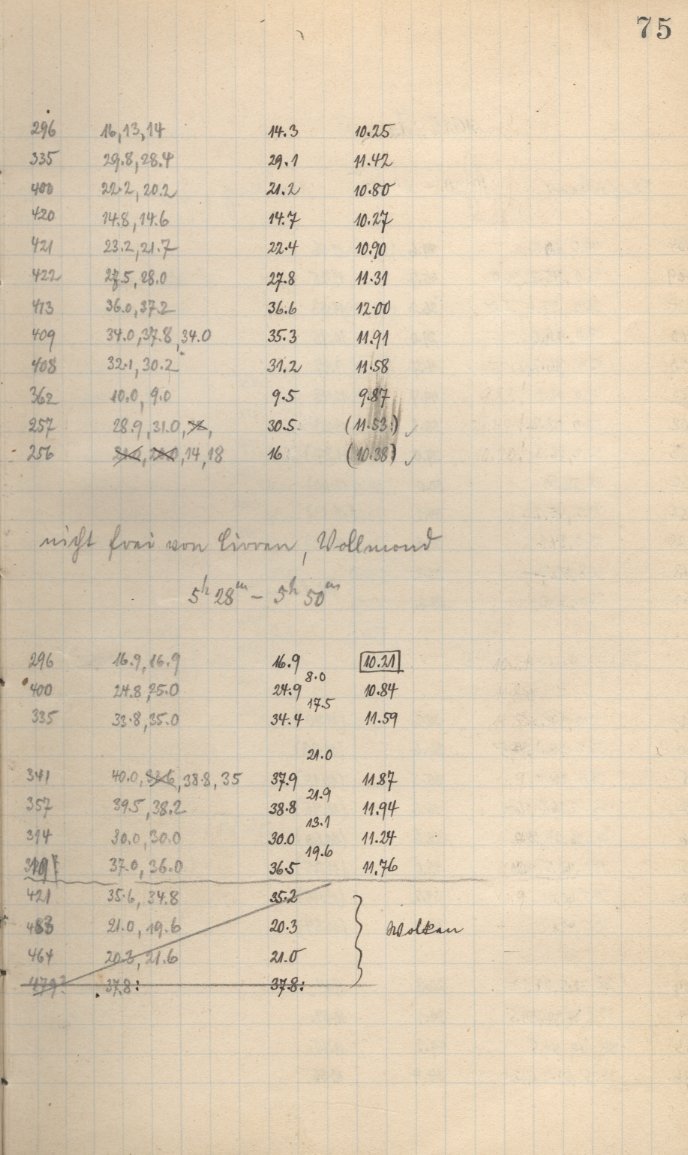 75
296 16, 13, 14 14.3 10.25
335 29.8, 28.4 29.1 11.42
400 22.2, 20.2 21.2 10.80
420 14.8, 14.6 14.7 10.27
421 23.2, 21.7 22.4 10.90
422 27.5, 28.0 27.8 11.31
413 36.0, 37.2 36.6 12.00
409 34.0, 37.8, 34.0 35.3 11.91
408 32.1, 30.2 31.2 11.58
362 10.0, 9.0 9.5 9.87
257 28.9, 31.0, 30.5 (11.53:)
256 14, 18 16 (10.38)
nicht frei von Cirren, Vollmond
5h 28m – 5h 50m
296 16.9, 16.9 16.9 10.21
8.0
400 24.8, 25.0 24.9 10.84
17.5
335 33.8, 35.0 34.4 11.59
21.0
341 40.0, 38.8, 35 37.9 11.87
21.9
357 39.5, 38.2 38.8 11.94
13.1
314 30.0, 30.0 30.0 11.24
19.6
37.0, 36.0 36.5 11.76
421 35.6, 34.8 35.2
21.0, 19.6 20.3 Wolken
464 20.3, 21.6 21.0
37.8: 37.8: